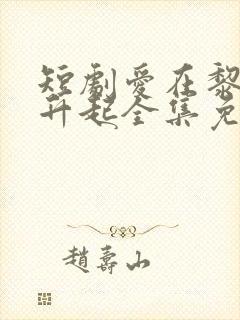 短劇愛在黎
升起全集免
趙壽山